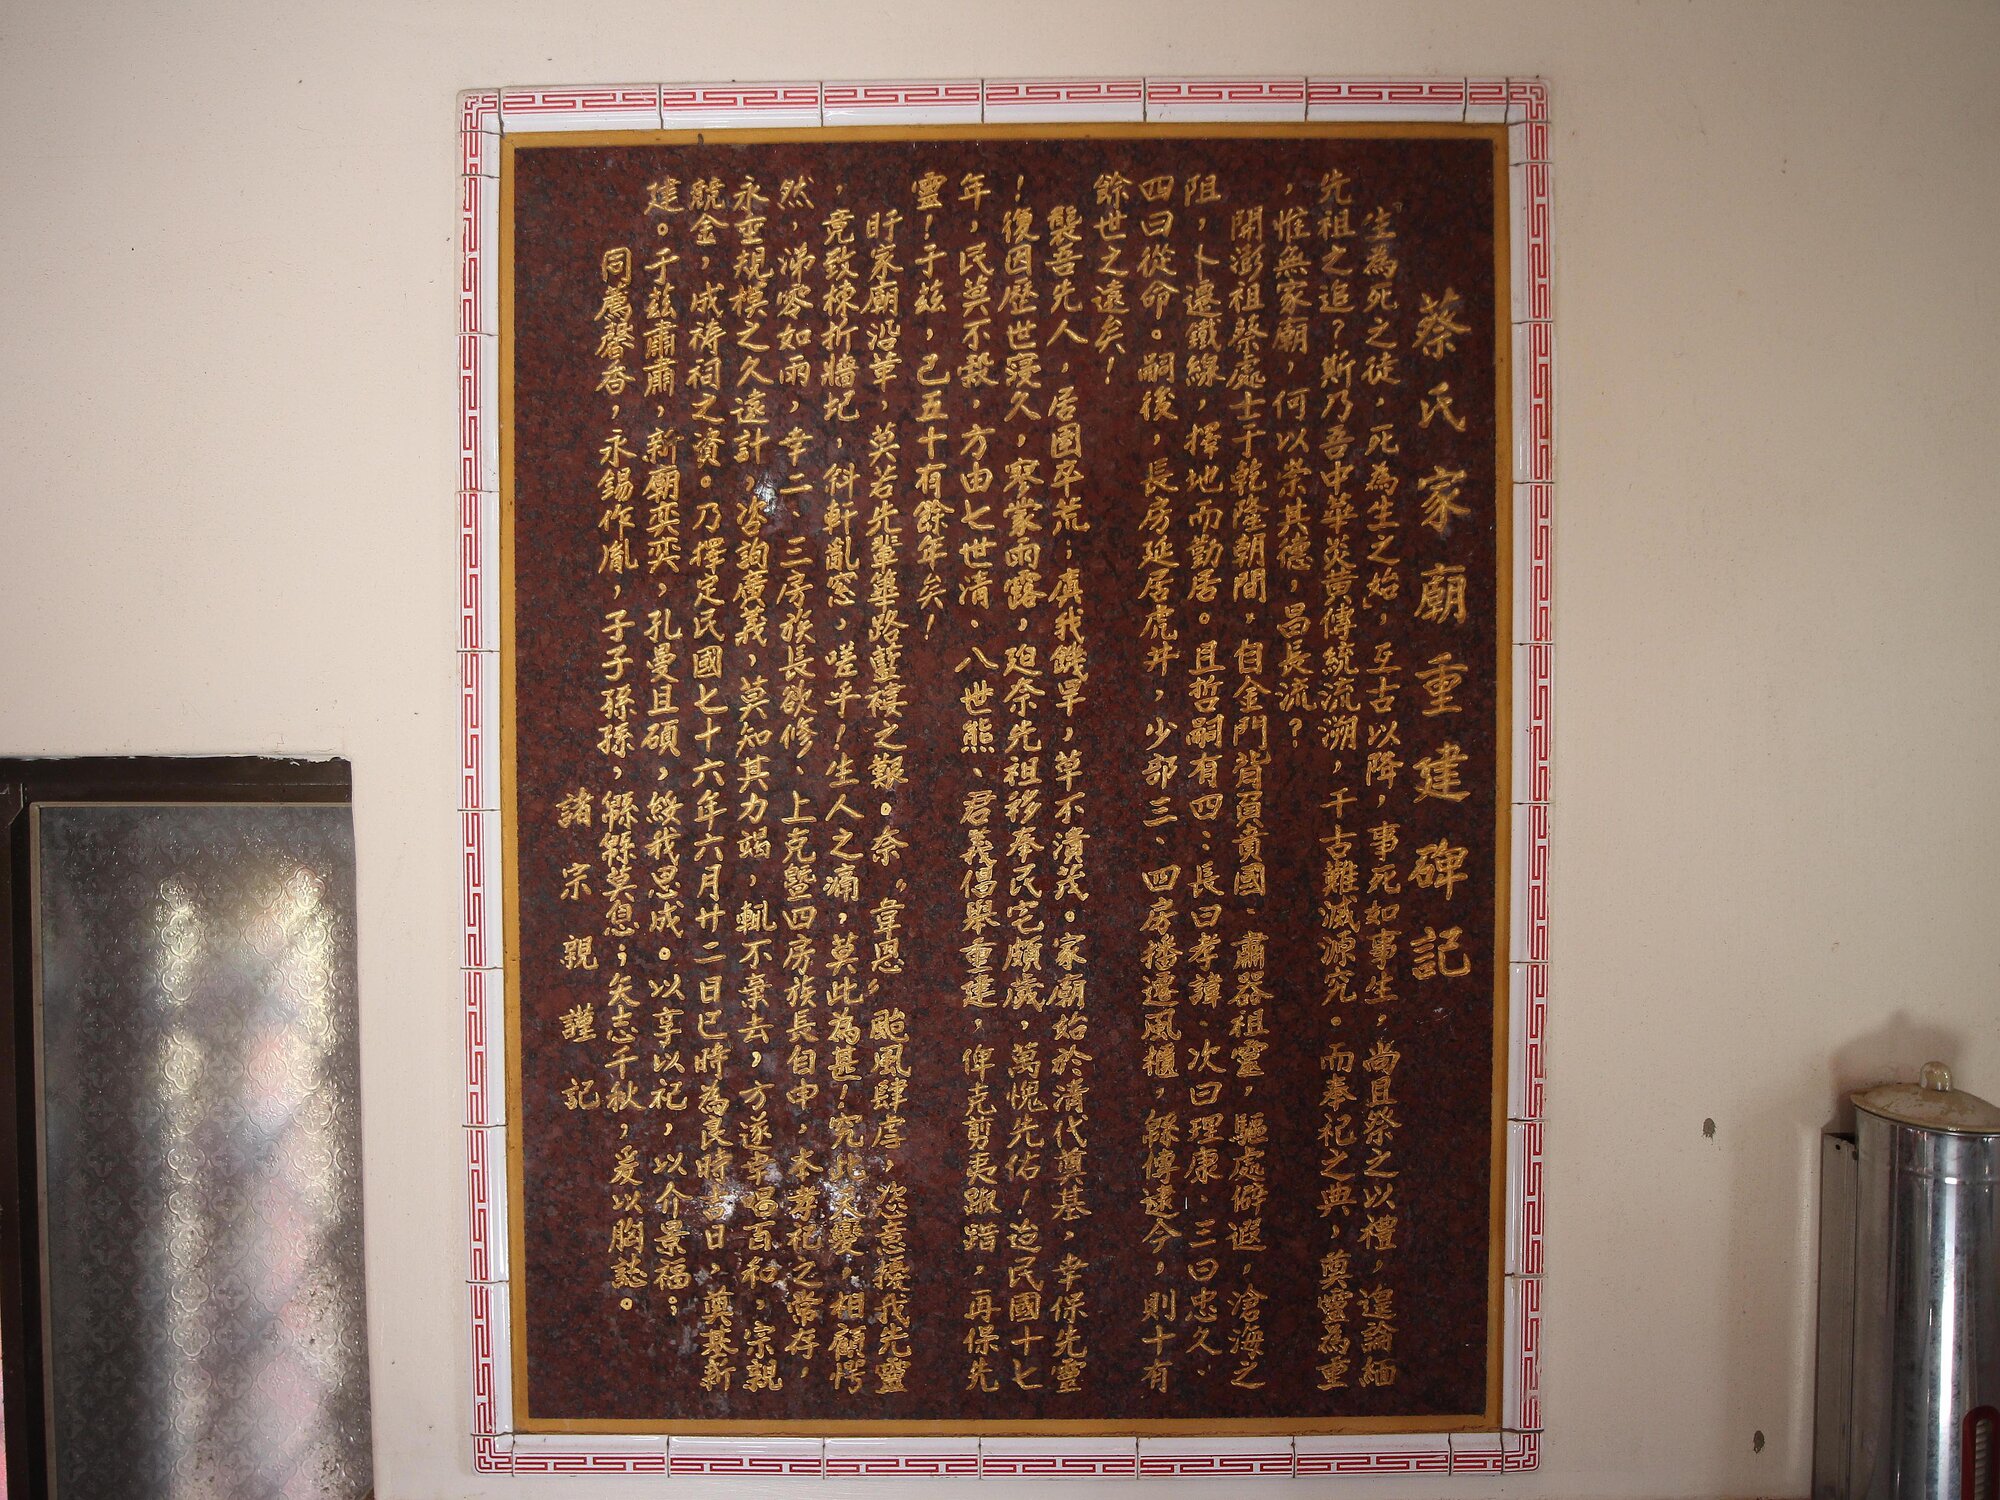 蔡氏家廟重建碑記
「生為死之徒，死為生之始」，亙古以降，事死如事生，尚且祭之以禮，遑論緬
先祖之追？斯乃吾中華炎黃傳統流溯，千古難滅源究。而奉祀之典，奠靈為重
，惟無家廟，何以崇其德，昌長流？
開澎祖蔡處士于乾隆朝間，自金門背簣國、肅器祖靈，驅處僻遐，滄海之
阻，卜遷鐵線，擇地而勤居。且哲嗣有四：長曰孝諱、次曰理康、三曰忠久、
四曰從命。嗣後，長房延居虎井，少部三、四房播遷風櫃，餘傳逮今，則十有
餘世之遠矣！
襲吾先人，居國卒荒；瘨我饑旱，草不潰茂。家廟始於清代奠基，幸保先靈
！復因歷世寖久，寒蒙雨露，廹奈先祖移奉民宅頗歲，萬愧先佑！迨民國十七
年，民莫不穀，方由七世清、八世熊、君義倡舉重建，俾克剪夷踧踖，再保先
靈！于茲，已五十有餘年矣！
盱家廟沿革，莫若先輩篳路藍褸之艱。奈〝韋恩〞颱風肆虐，恣意擾我先靈
，竟致棟折牆圮，斜軒亂窓，嗟乎！生人之痛，莫此為甚！究此災變，相顧愕
然，涕零如雨，幸二、三房族長欲修、上克暨四房族長自申，本孝祀之常存，
永垂規模之久遠計，咨詢廣義，莫知其力竭，輒不棄去，方遂幸唱百和，宗親
競金，成禱祠之資。乃擇定民國七十六年六月廿二日巳時為良時吉日，奠基新
建。于茲肅肅，新廟奕奕，孔曼且碩，綏我思成。以享以祀，以介景福；
同薦馨香，永錫作胤，子子孫孫，綿綿莫怠；矢志千秋，爰以胸誌。
諸宗親謹記